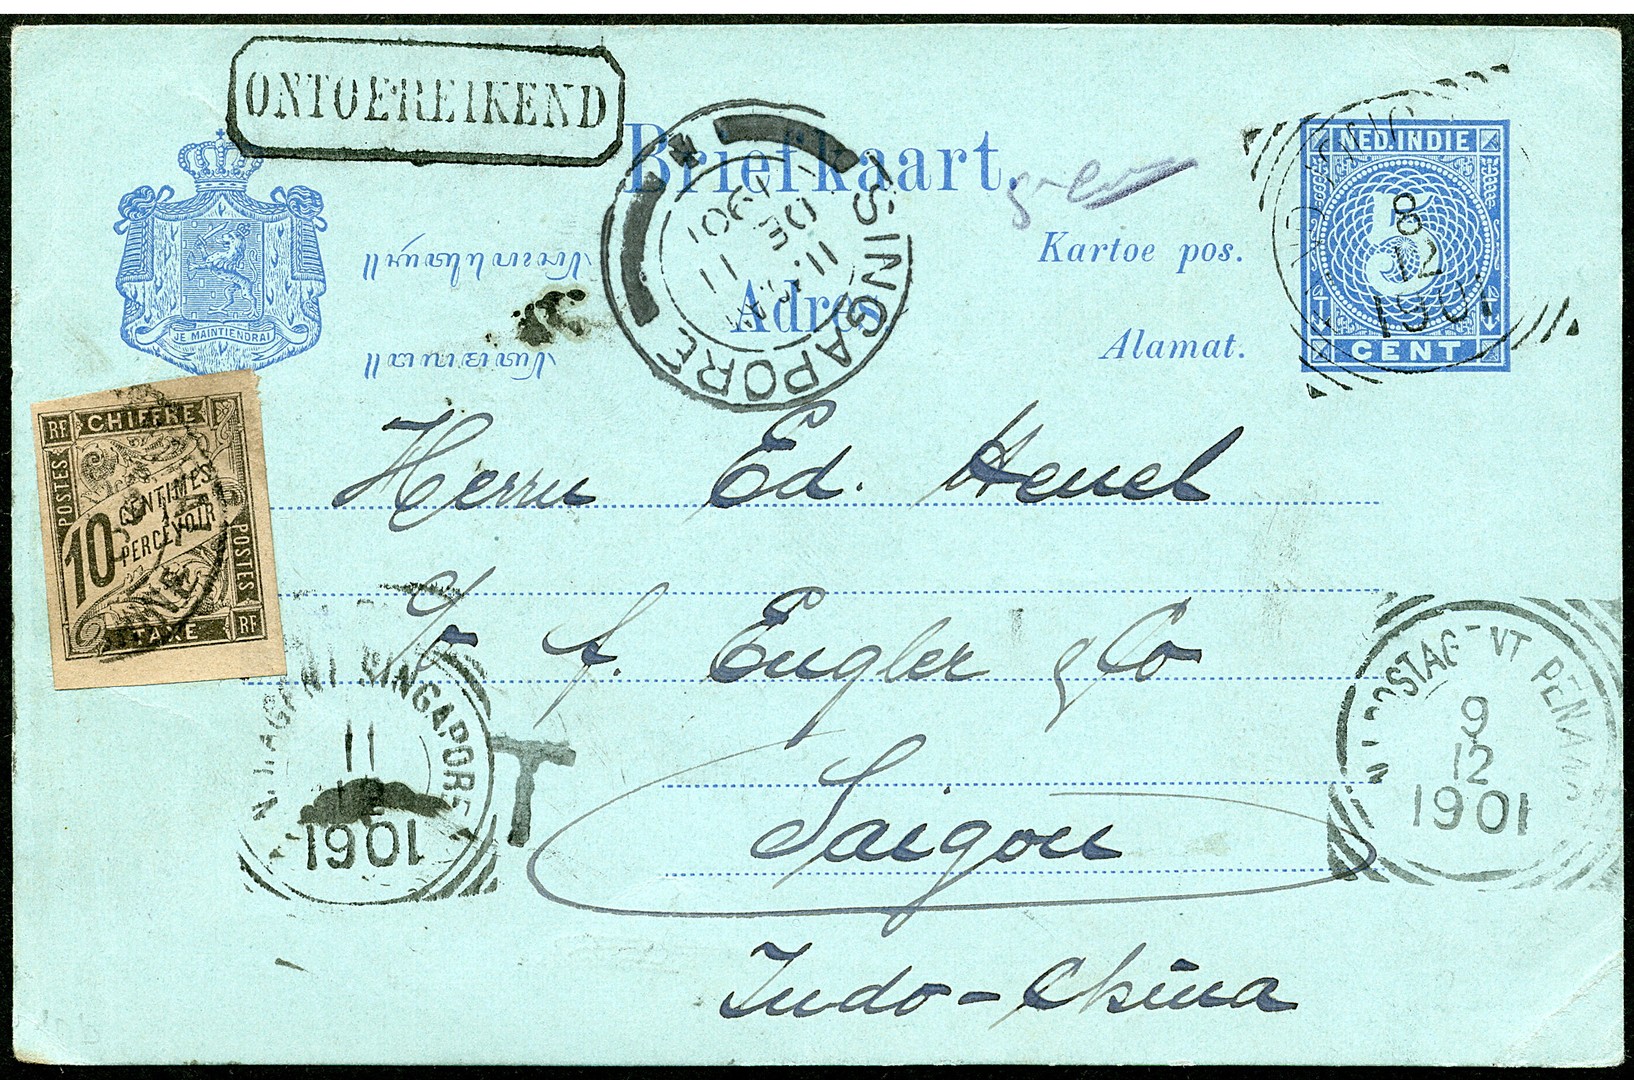 ONTOEREIKEND
Briefkaart.
NED. INDIE
5
CENT
8
12
1901
Kartoe pos.
Adres
Alamat.
JE MAINTIENDRAI
SINGAPORE
11
DE
1901
RF CHIFFRE RF
POSTES
10 CENTIMES
PERCEVOIR
POSTES
TAXE RF
Herrn Ed. Heuel
c/o F. Engler & Co
Saigon
Indo-China
N.I. AGENT SINGAPORE
11
12
1901
T
N.I. POSTAGENT PENANG
9
12
1901